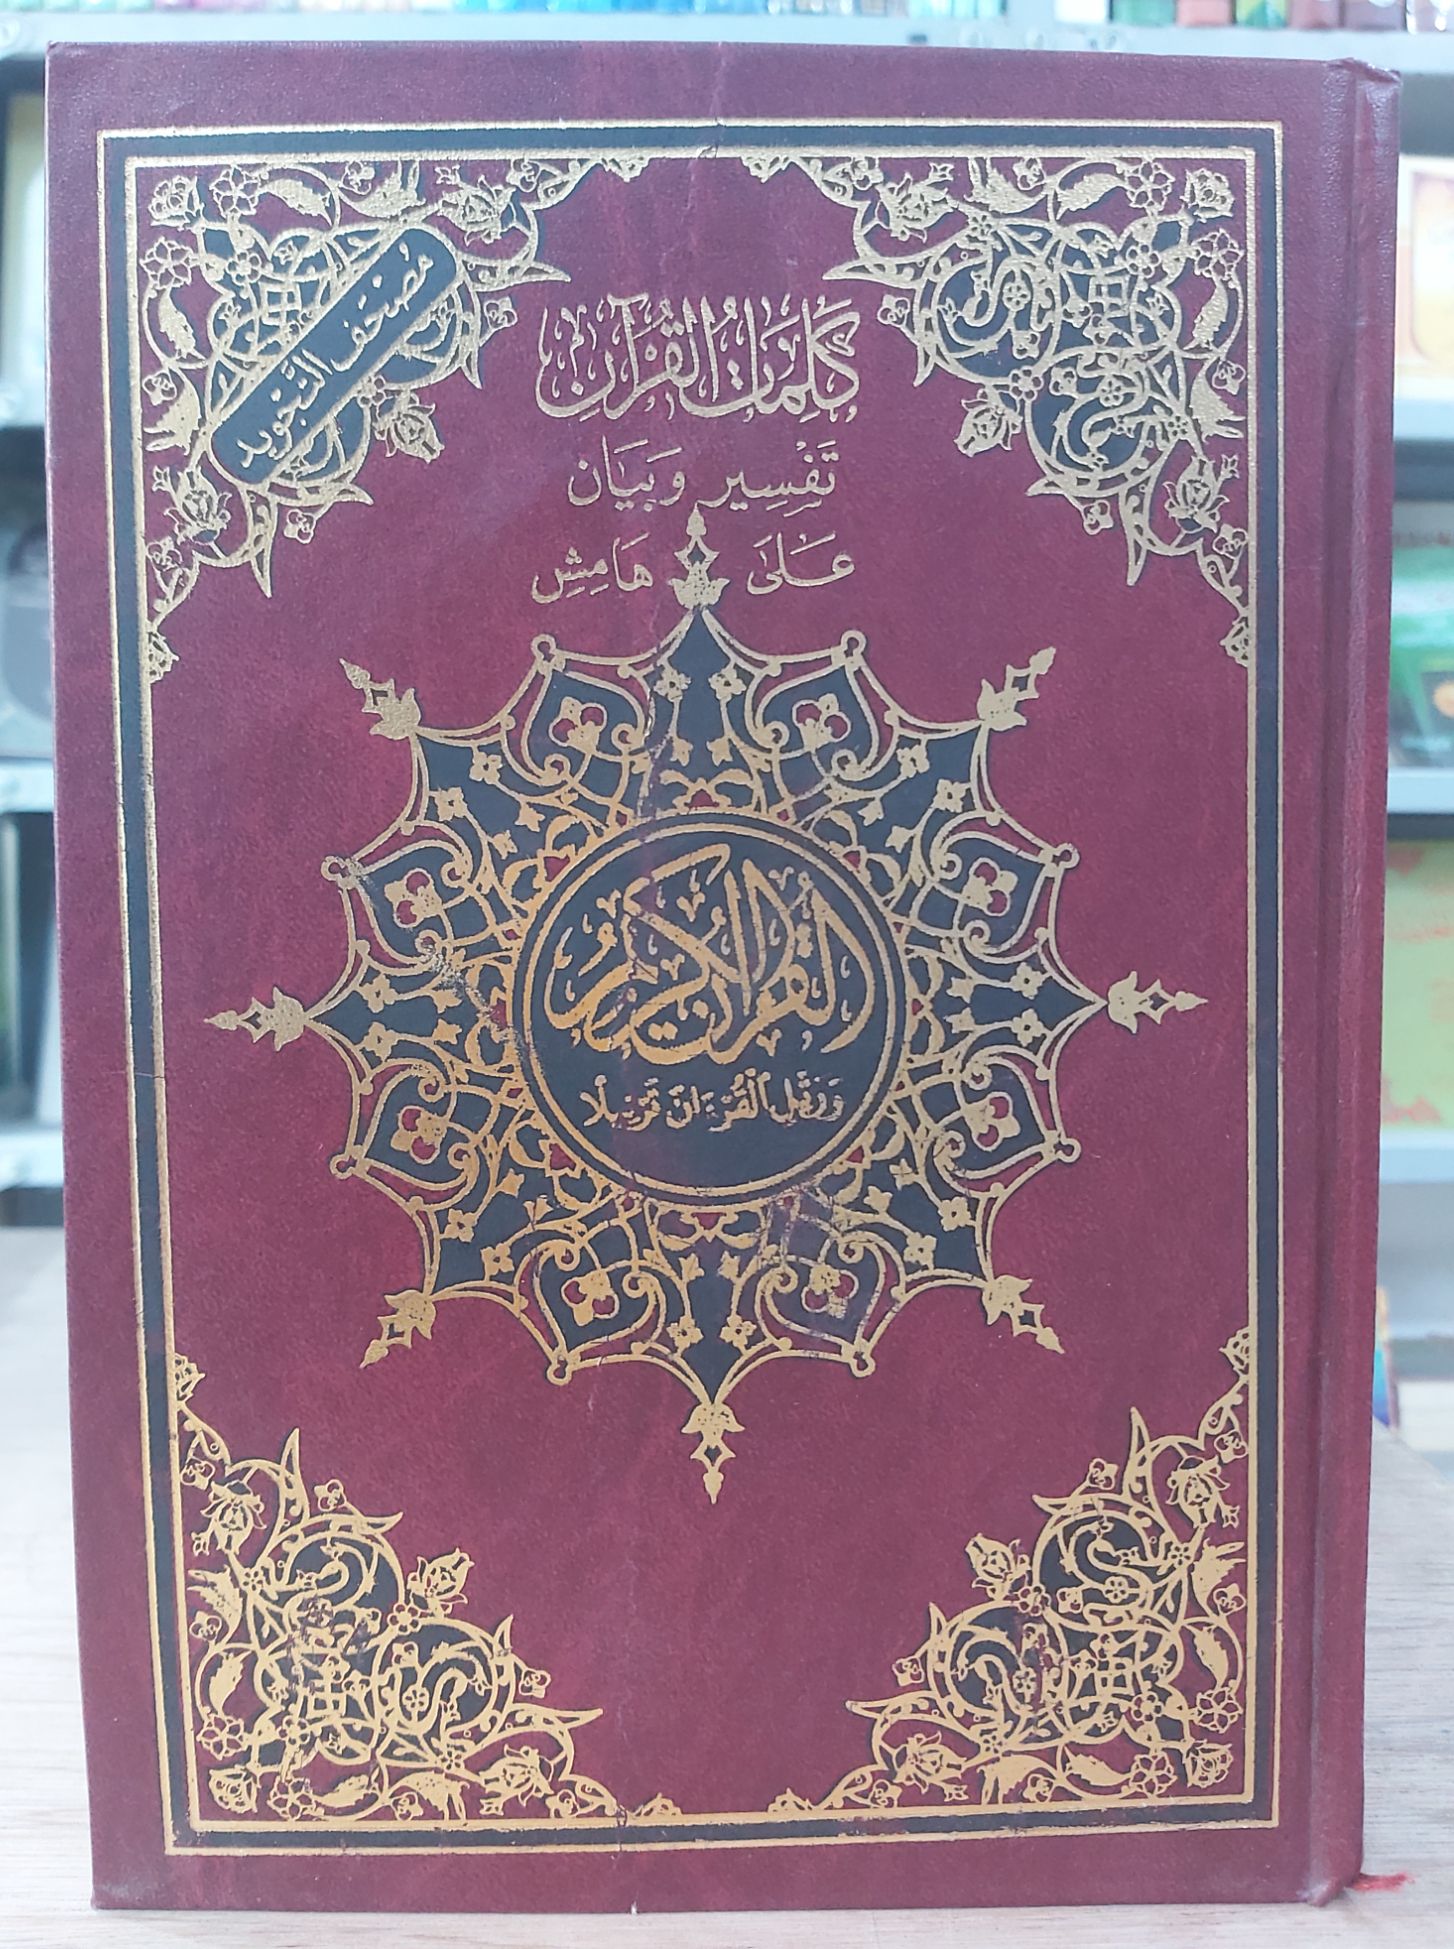 مصحف التجويد
كَلِمَاتُ القُرْآنِ
تَفْسِير وَبَيَان
عَلَىٰ هَامِشِ
القرآن الكريم
وَرَتِّلِ ٱلْقُرْءَانَ تَرْتِيلًا